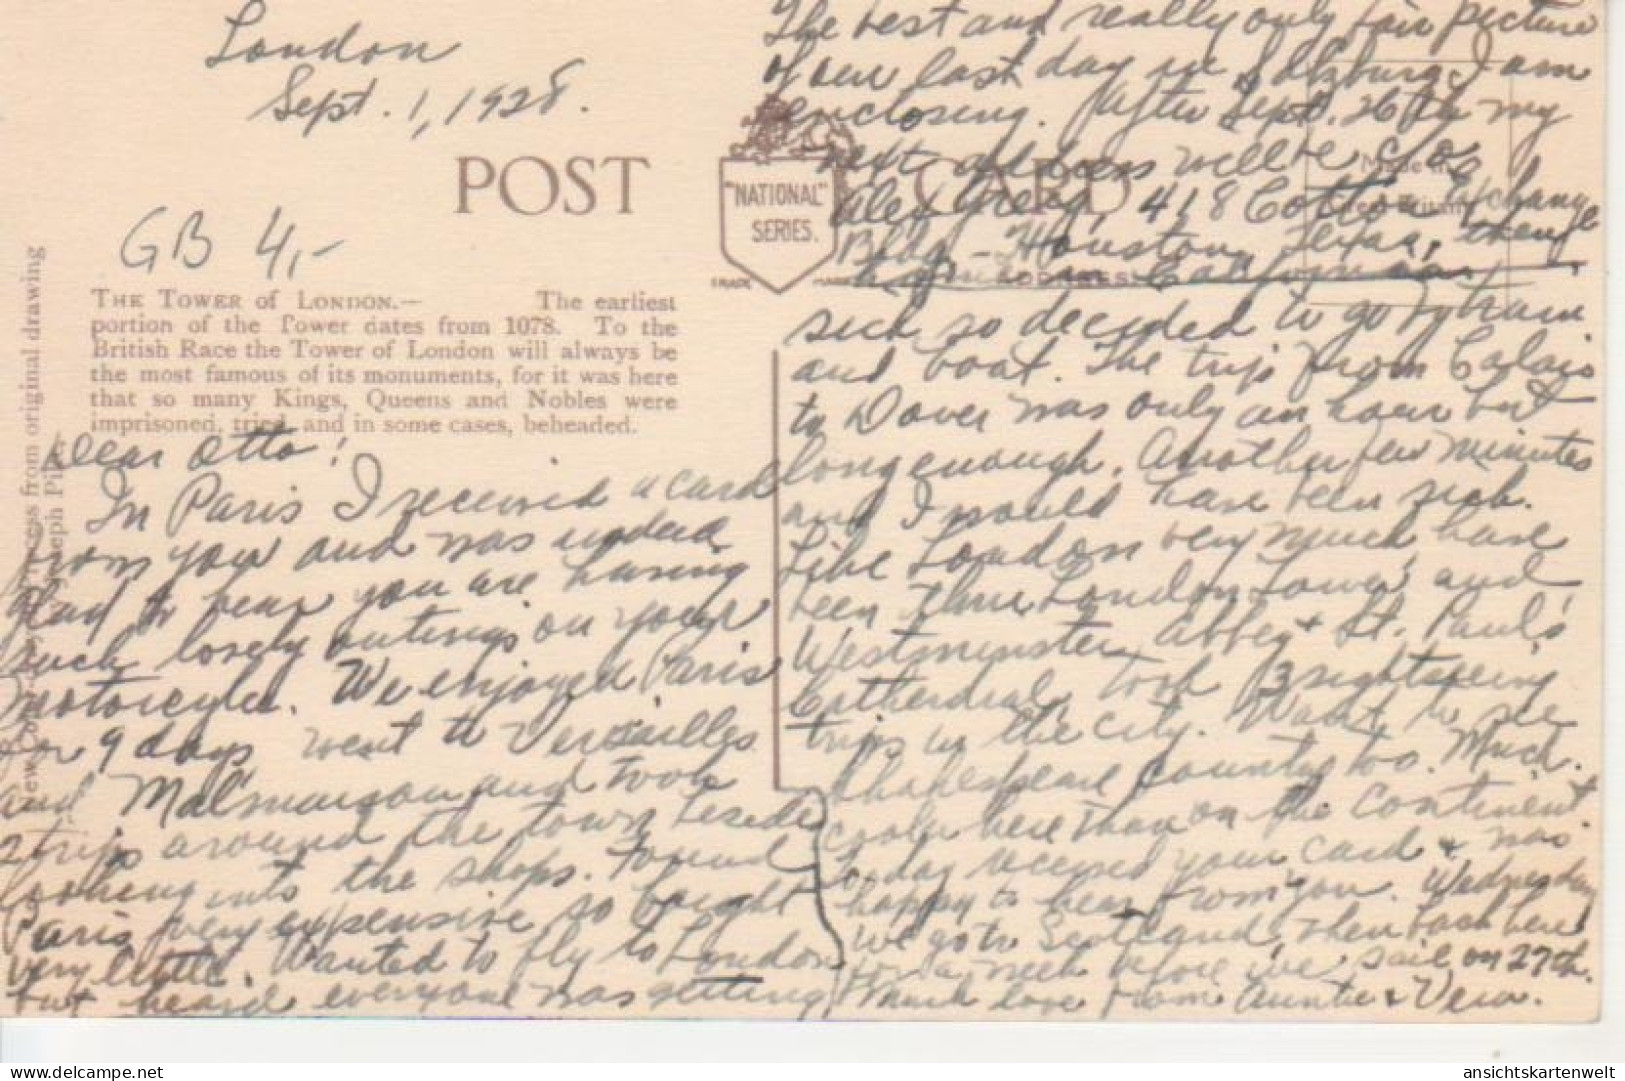 London
Sept. 1, 1928.
POST CARD
"NATIONAL"
SERIES.
TRADE MARK
Made in
Great Britain
ADDRESS
GB 4,-
THE TOWER of LONDON.— The earliest
portion of the Tower dates from 1078. To the
British Race the Tower of London will always be
the most famous of its monuments, for it was here
that so many Kings, Queens and Nobles were
imprisoned, tried, and in some cases, beheaded.
from original drawing
Joseph
Dear Otto!
In Paris I received a card
from you and was indeed
glad to hear you are having
such lovely outings on your
motorcycle. We enjoyed Paris
for 9 days went to Versailles
and Malmaison and took
2 trips around the town beside
looking into the shops. Found
Paris very expensive so bought
very little. Wanted to fly to London
but heard everyone was getting
sick so decided to go by train
and boat. The trip from Calais
to Dover was only an hour but
long enough. Another few minutes
and I would have been sick.
Like London very much, have
been thru London Tower, and
Westminster Abbey & St. Paul's
Cathedral. Took 3 sightseeing
trips in the city. Want to see
Shakespeare country too. Much
cooler here than on the continent.
Today received your card & was
happy to hear from you. Wednesday
we go to Scotland, then back here
for a week before we sail on 27th.
Much love from Auntie & Vera.
The best and really only fair picture
of our last day in Salzburg I am
enclosing. After Sept. 26th my
next address will be c/o
Alex Gregg, 418 Cotton Exchange
Bldg – Houston, Texas, then